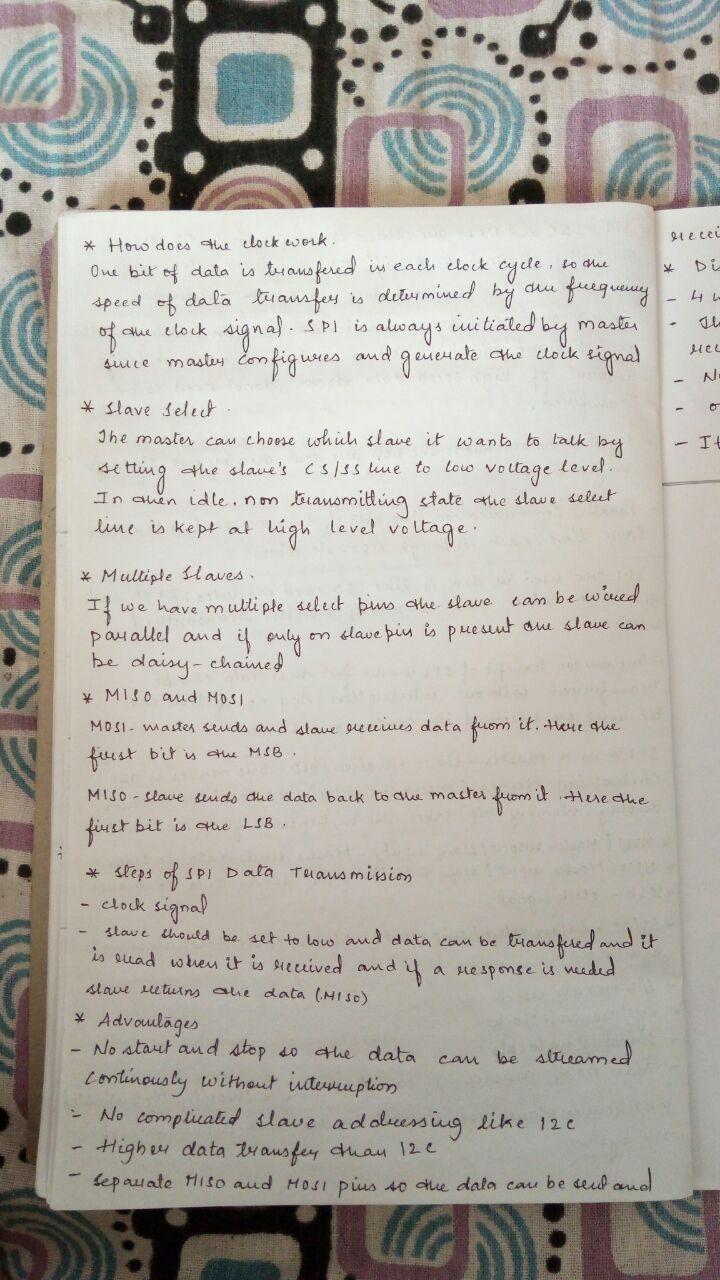 * How does the clock work.
One bit of data is transfered in each clock cycle, so the
speed of data transfer is determined by the frequency
of the clock signal. SPI is always initiated by master
since master configures and generate the clock signal
* Slave Select.
The master can choose which slave it wants to talk by
setting the slave's CS/SS line to low voltage level.
In then idle, non transmitting state the slave select
line is kept at high level voltage.
* Multiple Slaves.
If we have multiple select pins the slave can be wired
parallel and if only on slave pin is present the slave can
be daisy-chained
* MISO and MOSI.
MOSI - master sends and slave receives data from it. Here the
first bit is the MSB.
MISO - slave sends the data back to the master from it. Here the
first bit is the LSB.
* Steps of SPI Data Transmission
- clock signal
- slave should be set to low and data can be transfered and it
is read when it is received and if a response is needed
slave returns the data (MISO)
* Advantages
- No start and stop so the data can be streamed
continously without interruption
- No complicated slave addressing like I2C
- Higher data transfer than I2C
- separate MISO and MOSI pins so the data can be send and
recei
* Di
- 4 w
- Th
rec
- No
- o
- It